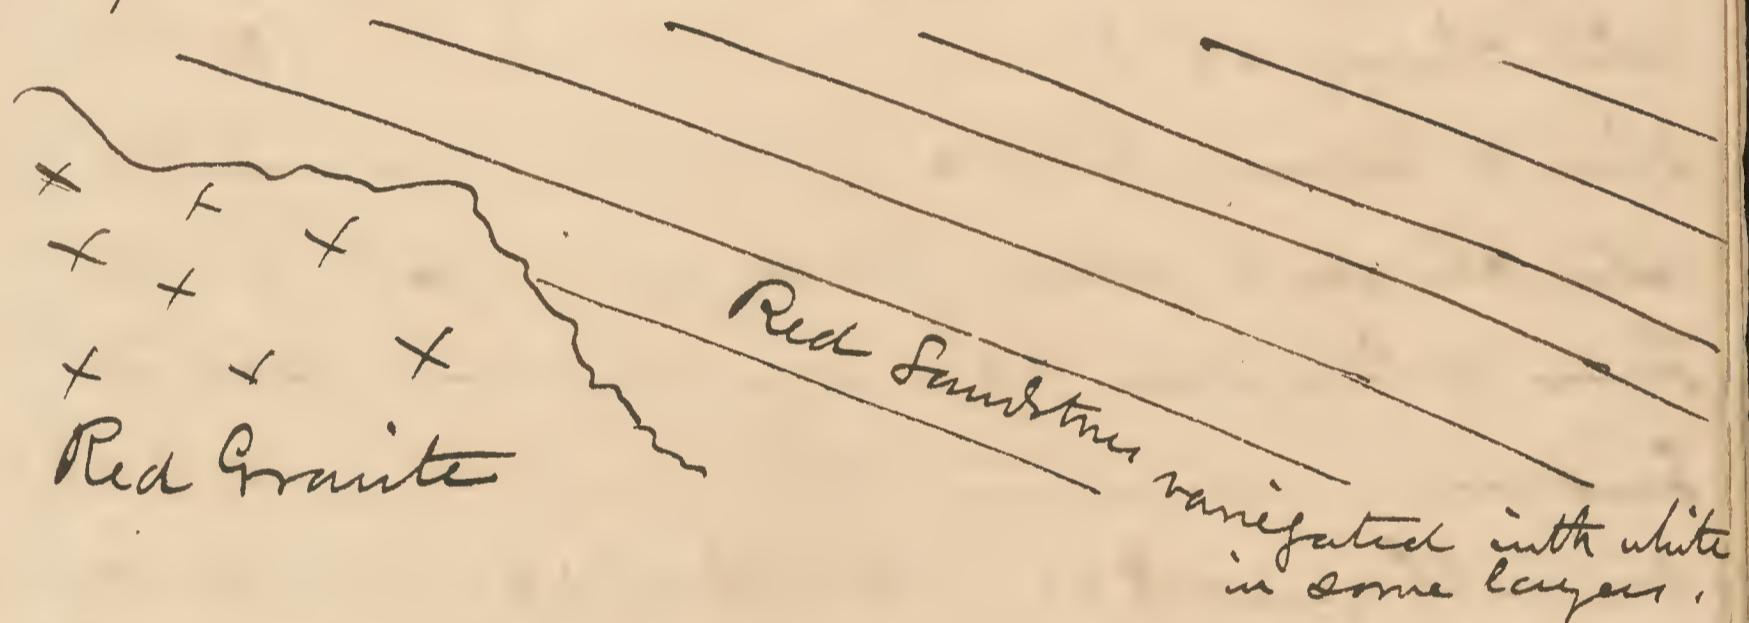 Red Granite
Red Sandstones variegated with white
in some layers.